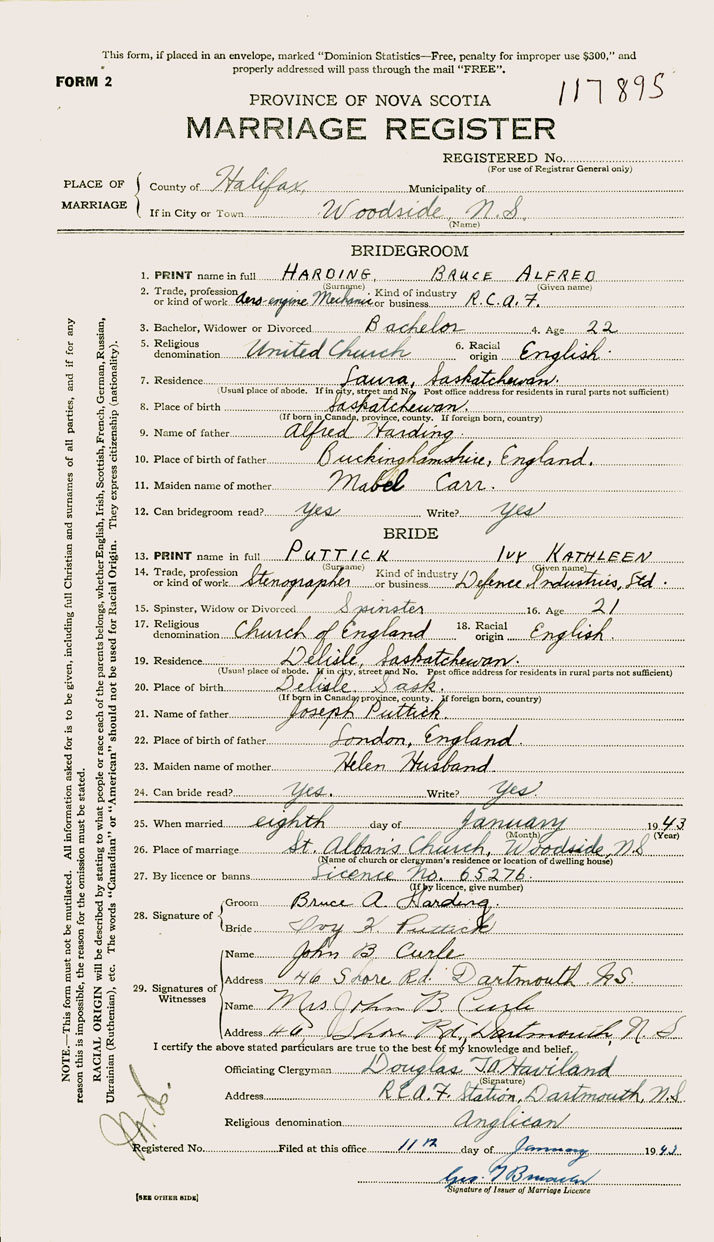 This form, if placed in an envelope, marked "Dominion Statistics—Free, penalty for improper use $300," and
properly addressed will pass through the mail "FREE".
FORM 2
117895
PROVINCE OF NOVA SCOTIA
MARRIAGE REGISTER
REGISTERED No.
(For use of Registrar General only)
PLACE OF MARRIAGE
County of Halifax, Municipality of
If in City or Town Woodside, N.S.
(Name)
BRIDEGROOM
1. PRINT name in full HARDING, BRUCE ALFRED
(Surname) (Given name)
2. Trade, profession or kind of work Aero-engine Mechanic Kind of industry or business R.C.A.F.
3. Bachelor, Widower or Divorced Bachelor 4. Age 22
5. Religious denomination United Church 6. Racial origin English.
7. Residence Laura, Saskatchewan.
(Usual place of abode. If in city, street and No. Post office address for residents in rural parts not sufficient)
8. Place of birth Saskatchewan.
(If born in Canada, province, county. If foreign born, country)
9. Name of father Alfred Harding
10. Place of birth of father Buckinghamshire, England.
11. Maiden name of mother Mabel Carr.
12. Can bridegroom read? Yes Write? Yes
BRIDE
13. PRINT name in full PUTTICK IVY KATHLEEN
(Surname) (Given name)
14. Trade, profession or kind of work Stenographer Kind of industry or business Defence Industries, Ltd.
15. Spinster, Widow or Divorced Spinster 16. Age 21
17. Religious denomination Church of England 18. Racial origin English.
19. Residence Delisle, Saskatchewan.
(Usual place of abode. If in city, street and No. Post office address for residents in rural parts not sufficient)
20. Place of birth Delisle Sask.
(If born in Canada, province, county. If foreign born, country)
21. Name of father Joseph Puttick.
22. Place of birth of father London, England.
23. Maiden name of mother Helen Husband
24. Can bride read? Yes. Write? Yes.
25. When married eighth day of January 1943
(Month) (Year)
26. Place of marriage St. Albans Church, Woodside, NS
(Name of church or clergyman's residence or location of dwelling house)
27. By licence or banns Licence No. 65276.
(If by licence, give number)
28. Signature of
Groom Bruce A. Harding.
Bride Ivy K Puttick
29. Signatures of Witnesses
Name John B. Curle
Address 46 Shore Rd. Dartmouth N.S.
Name Mrs. John B. Curle
Address 46 Shore Rd., Dartmouth, N.S
I certify the above stated particulars are true to the best of my knowledge and belief.
Officiating Clergyman Douglas Haviland
(Signature)
Address R.C.A.F. Station, Dartmouth, N.S.
Religious denomination Anglican
Registered No. Filed at this office 11th day of January 1943
Geo.
Signature of Issuer of Marriage Licence
[SEE OTHER SIDE]
NOTE.—This form must not be mutilated. All information asked for is to be given, including full Christian and surnames of all parties, and if for any
reason this is impossible, the reason for the omission must be stated.
RACIAL ORIGIN will be described by stating to what people or race each of the parents belongs, whether English, Irish, Scottish, French, German, Russian,
Ukrainian (Ruthenian), etc. The words "Canadian" or "American" should not be used for Racial Origin. They express citizenship (nationality).